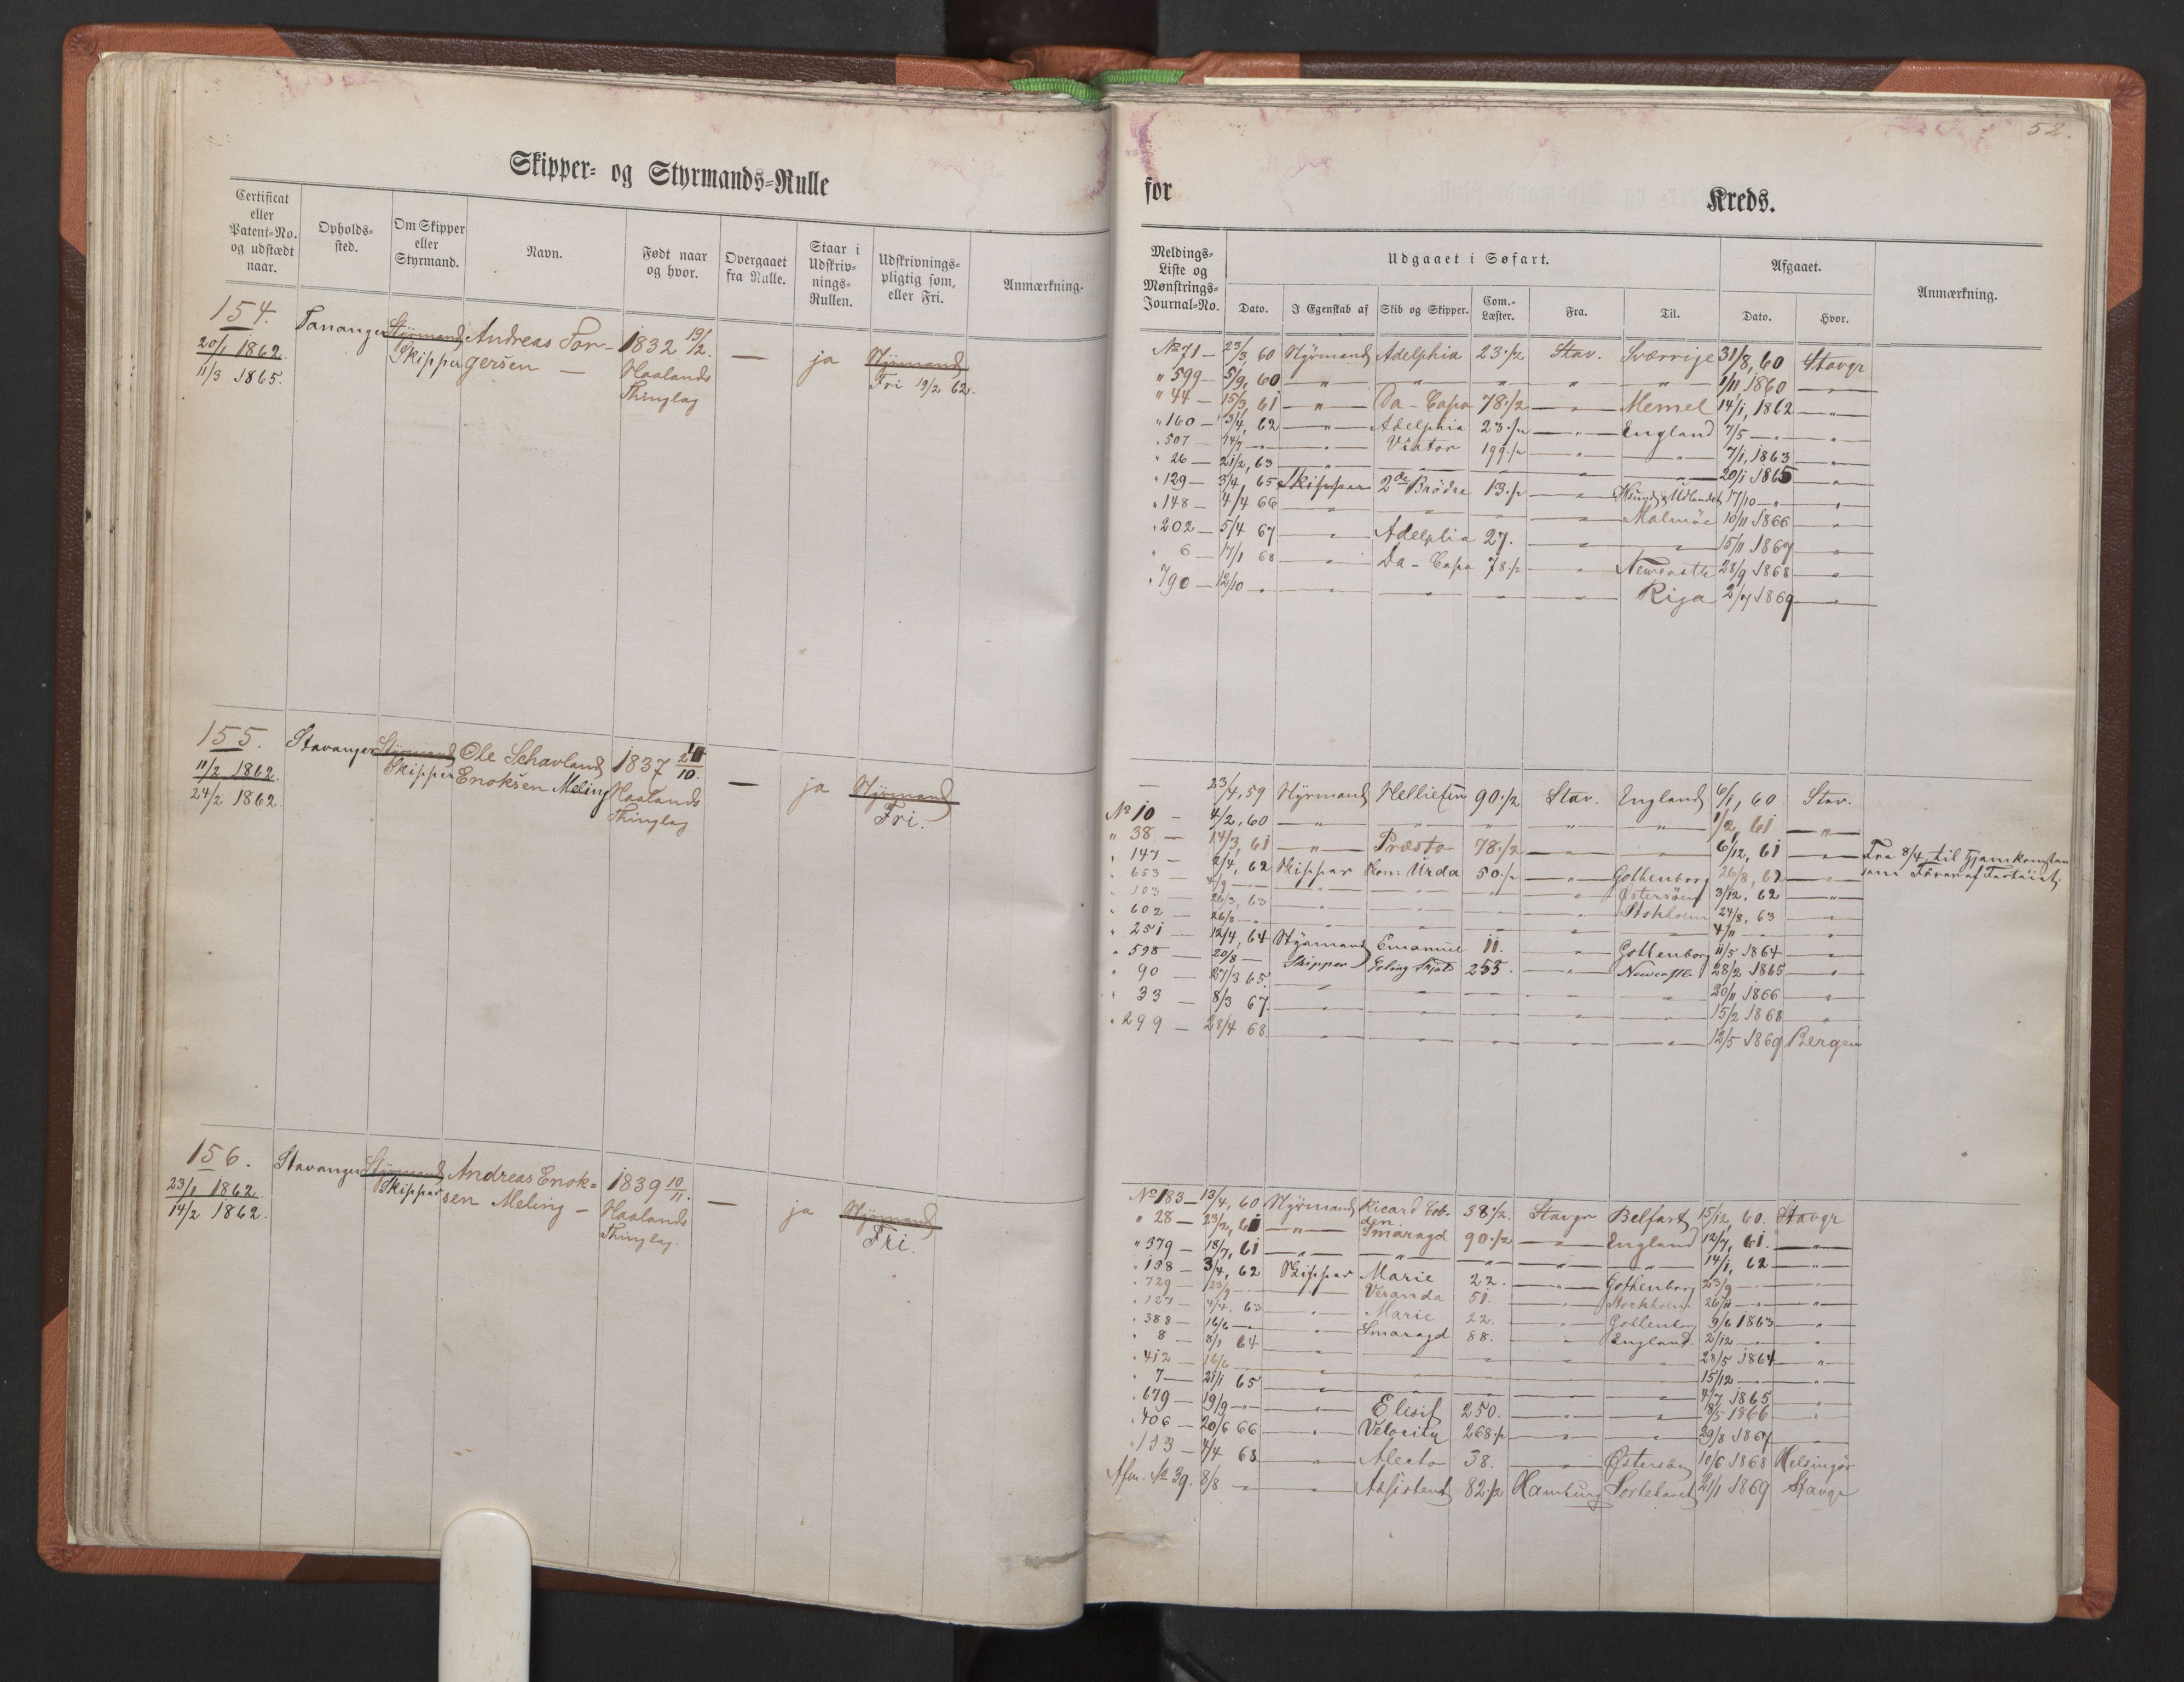 Skipper- og Styrmands-Rulle
Certificat eller Patent-No. og udstædt naar.
Opholds-sted.
Om Skipper eller Styrmand.
Navn.
Født naar og hvor.
Overgaaet fra Rulle.
Staar i Udskriv-nings-Rullen.
Udskrivnings-pligtig som, eller Fri.
Anmærkning.
154. Tananger Styrmand Andreas Tor- 1832 19/2. — ja Styrmand
20/1 1862. Skipper gersen — Haalands Fri 19/2 62.
11/3 1865. Thinglag
155. Stavanger Styrmand Ole Schavland 1837 — ja Styrmand
11/2 1862. Skipper Enoksen Meling Haalands Fri.
24/2 1862. Thinglag
156. Stavanger Styrmand Andreas Enok= 1839 10/11. — ja Styrmand
23/1 1862. Skipper sen Meling — Haalands Fri.
14/2 1862. Thinglag.
52.
for Kreds.
Meldings-Liste og Mønstrings-Journal-No.
Udgaaet i Søfart.
Dato.
I Egenskab af
Skib og Skipper.
Com.-Læster.
Fra.
Til.
Afgaaet.
Dato.
Hvor.
Anmærkning.
No 71 — 23/3, 60 Styrmand Adelphia 23 1/2 Stav. Sverrige 31/8, 60 Stavgr
" 599 — 5/9, 60 — " — " — " — " — " 1/11 1860 — " —
" 44 — 15/3, 61 — " — Da-Capo 78 1/2 — " — Memel 14/1, 1862 — " —
" 160 — 3/4, 62 — " — Adelphia 23 1/2 — " — England 7/5 — " — "
" 507 — — " — " — Viator 199 1/2 — " — " — 7/1, 1863 — " —
" 26 — 21/2, 63 — " — " — " — " — " — 20/1 1865 — " —
" 129 — 3/4, 65 Skipper 2de Brödre 13 1/2 — " — Udlandet 17/10 — " — "
" 148 — 4/4 66 — " — " — " — " — Malmöe 10/11 1866 — " —
" 202 — 5/4 67 — " — Adelphia 27. — " — " — 15/11 1867 — " —
" 6 — 17/1 68 — " — Da-Capo 78 1/2 — " — Newcastle 28/9 1868 — " —
" 790 — 12/10 — " — " — " — " — " — Riga 2/7 1869 — " —
— 23/4, 59 Styrmand 90 1/2 Stav. England 6/1, 60 Stav.
No 10 — 4/2, 60 — " — " — " — " — " — 1/2, 61 — " —
" 38 — 14/3, 61 — " — Præsto 78 1/2 — " — " — 6/12, 61 — " —
" 147 — 2/4, 62 Skipper Urda 50 1/2 — " — Gothenborg 26/8, 62 — " — Fra 8/4, til Hjemkomsten
" 653 — 4/9 — " — " — " — " — " — Østersöen 3/12, 62 — " —
" 103 — 26/3, 63 — " — " — " — " — Stokholm 24/8, 63 — " —
" 602 — 26/8 — " — " — " — " — " — " — 4/11 — " — "
" 251 — 12/4, 64 Styrmand Emanuel 11. — " — Gottenborg 11/5 1864 — " —
" 598 — 20/8 — Skipper Erling Skjals 255. — " — Newcastle 28/2 1865 — " —
" 90 — 27/3 65. — " — " — " — " — " — 20/11 1866 — " —
" 33 — 8/3 67. — " — " — " — " — " — 15/2 1868 — " —
" 299 — 28/4 68. — " — " — " — " — " — 12/5 1869 Bergen
No 183 — 13/4, 60 Styrmand Ricard Cob- 38 1/2. Stavgr Belfast 15/12, 60. Stavgr
den
" 28 — 23/2, 61 — " — Smaragd 90 1/2 — " — England 12/7, 61. — " —
" 379 — 18/7, 61 — " — " — " — " — " — 14/1, 62 — " —
" 158 — 3/4, 62 Skipper Marie 22. — " — Gothenborg 23/9 — " — "
" 729 — 23/9 — " — " — Veranda 51. — " — Stockholm 26/11 — " — "
" 127 — 4/4, 63 — " — Marie 22. — " — Gottenborg 9/6 1863 — " —
" 388 — 16/6 — " — " — Smaragd 88. — " — England 2/12 — " — "
" 8 — 8/1 64 — " — " — " — " — " — 28/5 1864 — " —
" 412 — 16/6 — " — " — " — " — " — 15/12 — " — "
" 7 — 21/1 65 — " — " — " — " — " — 4/7 1865 — " —
" 679 — 19/9 — " — " — Elisif 250. — " — " — 8/5 1866 — " —
" 406 — 20/6 66 — " — Velocity 268 1/2 — " — " — 29/8 1867 — " —
" 133 — 4/4 68 — " — Alecto 38. — " — Østersöen 10/6 1868 Helsingör
Afm. No 39. 8/8 — " — Assistent 82 1/2 Hamburg Sortehavet 21/1 1869 Stavgr